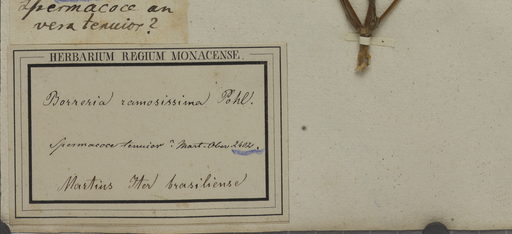 Spermacoce an
vera tenuior?
HERBARIUM REGIUM MONACENSE.
Borreria ramosissima Pohl.
Spermacoce tenuior? Mart. Obs. 2402.
Martius Iter brasiliense